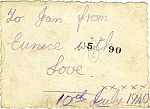 To Jan from
Eunice with
5 90
Love.
x x x x x
10th July 1940